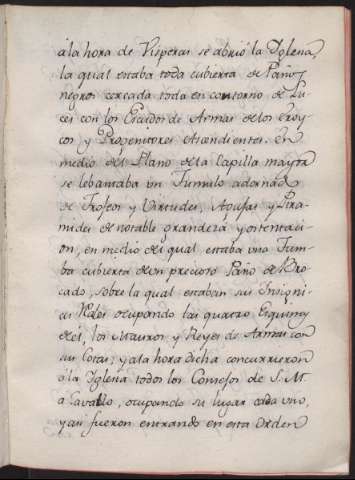 âla hora de Visperas se abriò la Iglesia,
la qual estaba toda cubierta de Paños
negros cercada toda en contorno de Lu-
ces con los Escudos de Armas de los
y Progenitores Ascendientes. En
medio del Plano dela Capilla mayor
se lebantaba un Tumulo adornado
de Trofeos y Virtudes, y Pira-
mides de notable grandeza y ostenta-
cion, en medio del qual estaba una Tum-
ba cubierta de un precioso Paño de Bro-
cado, sobre la qual estaban sus Insigni-
as Rles ocupando las quatro Esquinas
del, los Maceros y Reyes de Armas con
sus Cotas; y ala hora dicha concurrieron
âla Iglesia todos los Consejos de S. M.
a Cavallo, ocupando su lugar cada uno,
y asi fueron entrando en esta Orden